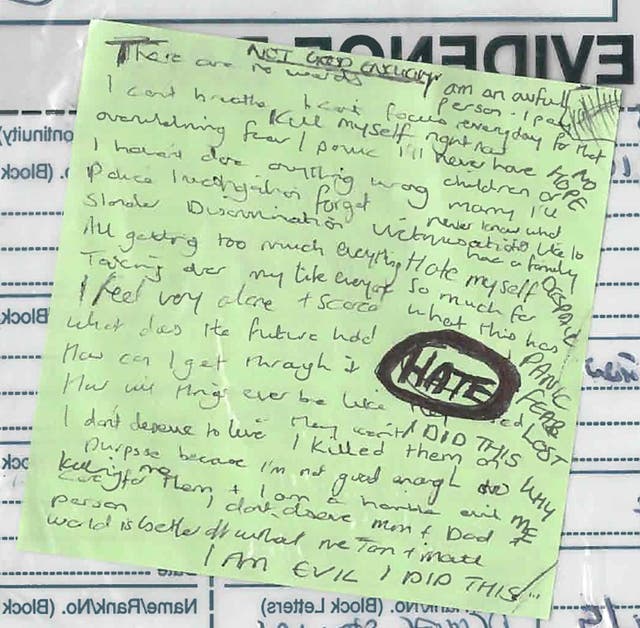 EVIDENCE
NOT GOOD ENOUGH
There are no words
I am an awfull person. I pay
I can't breathe I can't focus everyday for that
overwhelming fear / panic
Kill myself right now
I'll never have NO HOPE
children or marry I'll
I haven't done anything wrong
never know what
Police Investigation forget
its like to have a family
Slander Discrimination Victimisation
All getting too much everything
Hate myself DESPAIR
so much for
Taking over my life everyday
what this has
I feel very alone + scared
What does the future hold
PANIC
How can I get through it
HATE
FEAR
How will things ever be like
LOST
I DID THIS
I don't deserve to live
I killed them on
WHY ME
purpose because I'm not good enough to
care for them + I am a horrible evil
person I don't deserve mum + Dad
killing me
world is better off without me
I AM EVIL I DID THIS
ontinuity)
(Block
No. (Block
Block
ock
Name/Rank/No. (Block)
/No. (Block Letters)